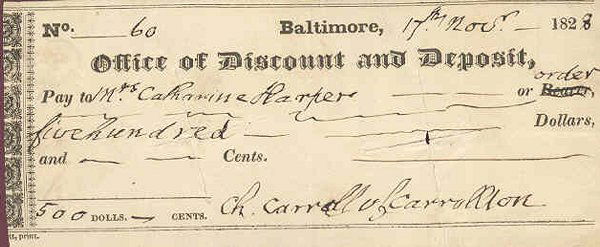 No. 60 Baltimore, 17th Novr. 1828
Office of Discount and Deposit,
order
Pay to Mrs Catharine Harper or Bearer,
five hundred Dollars,
and Cents.
500 DOLLS. CENTS. Ch. Carroll of Carrollton
print.